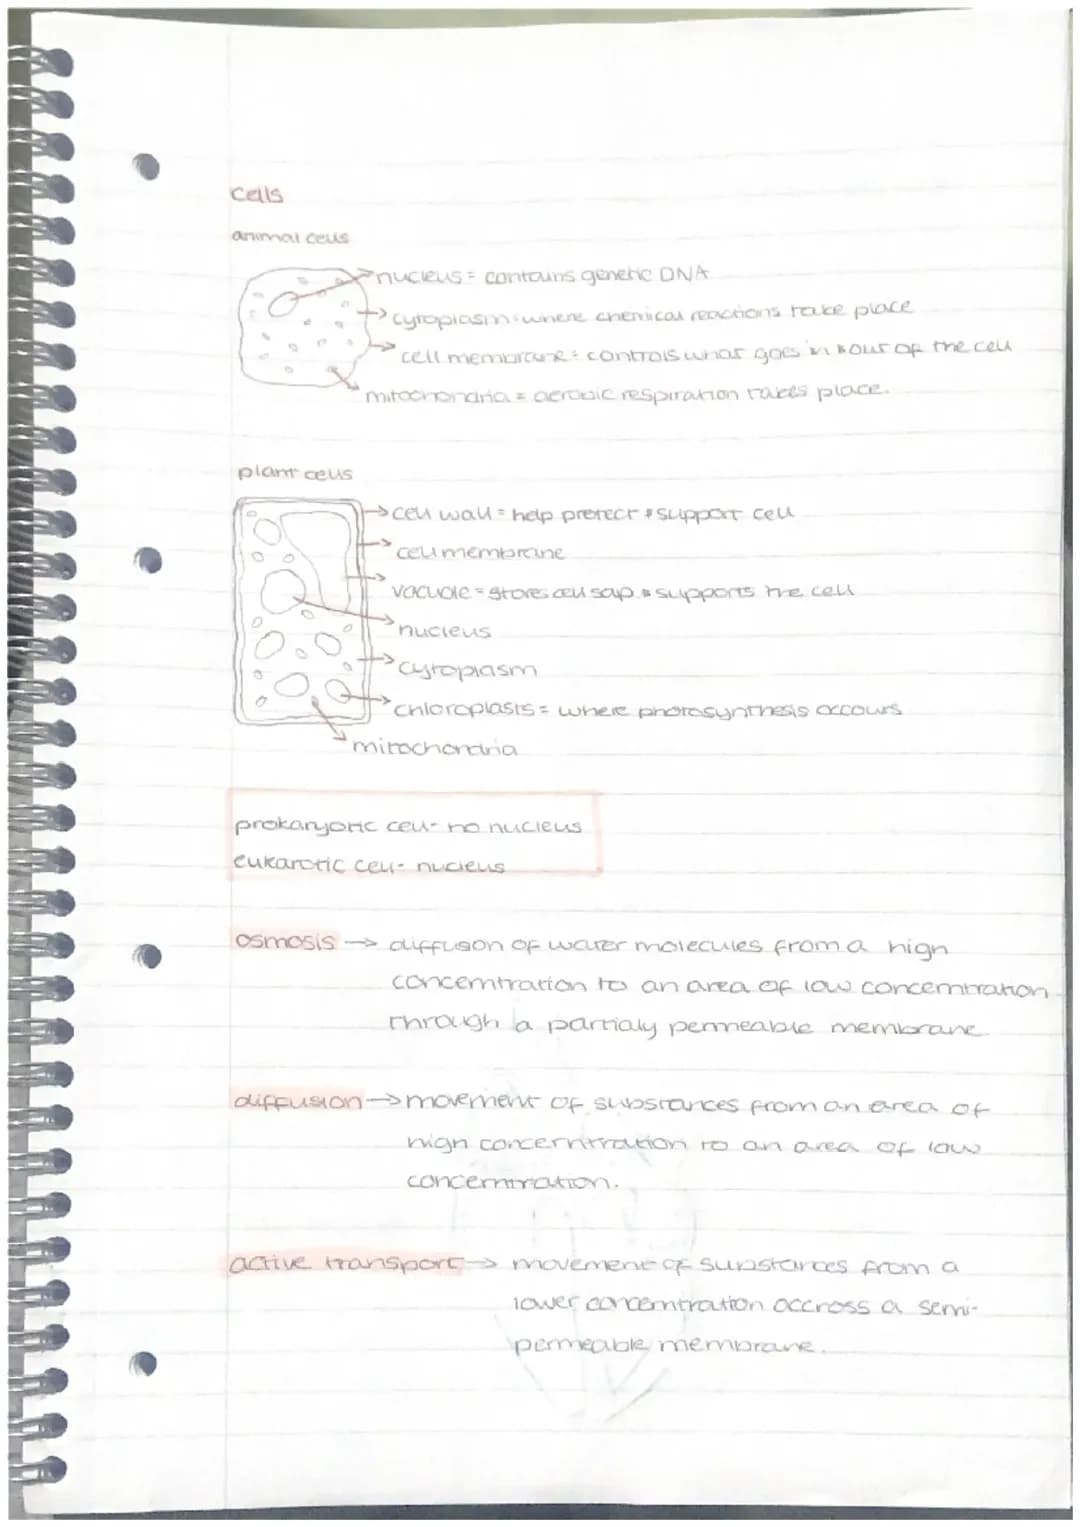 cells
animal cells
nucleus = contains genetic DNA
cytoplasm = where chemical reactions take place
cell membrane = controls what goes in & out of the cell
mitochondria = aerobic respiration takes place.
plant cells
cell wall = help pretect & support cell
cell membrane
vacuole = stores cell sap & supports the cell
nucleus
cytoplasm
chloroplasts = where photosynthesis occours
mitochondria
prokaryotic cell - no nucleus
eukarotic cell - nucleus
osmosis → diffusion of water molecules from a high
concentration to an area of low concentration
through a partialy permeable membrane
diffusion → movement of substances from an area of
high concentration to an area of low
concentration.
active transport → movement of substances from a
lower concentration accross a semi-
permeable membrane.